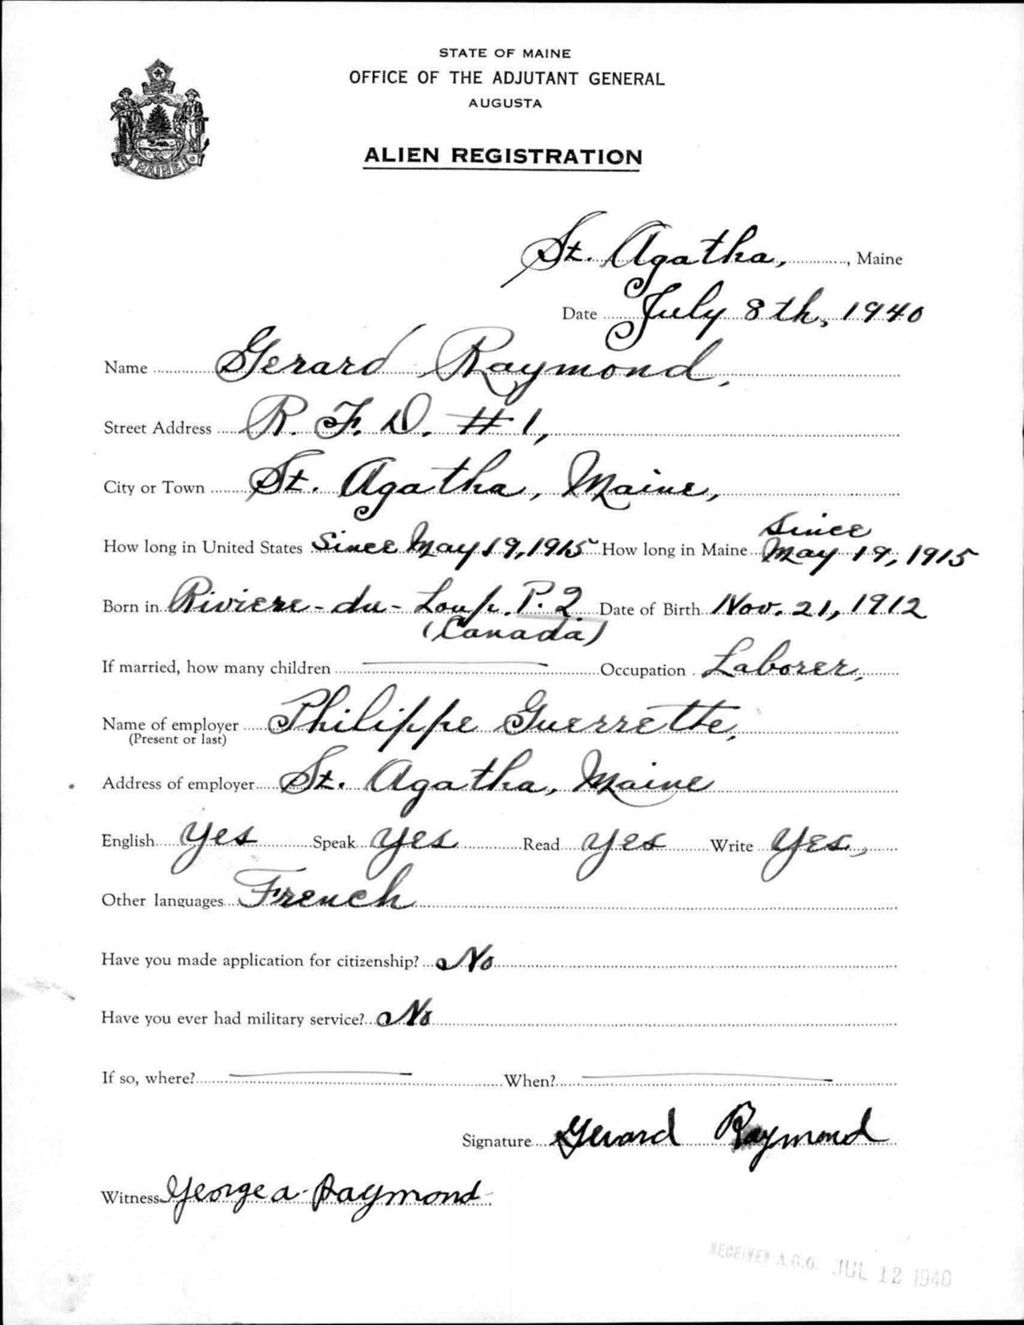 STATE OF MAINE
OFFICE OF THE ADJUTANT GENERAL
AUGUSTA
ALIEN REGISTRATION
MAINE
St. Agatha, , Maine
Date July 8th, 1940
Name Gerard Raymond,
Street Address R. F. D. #1,
City or Town St. Agatha, Maine,
How long in United States Since May 19, 1915 How long in Maine Since May 19, 1915
Born in Riviere-du-Loup. P. Q. (Canada) Date of Birth Nov. 21, 1912
If married, how many children Occupation Laborer,
Name of employer Philippe Guerrette,
(Present or last)
Address of employer St. Agatha, Maine
English Yes Speak Yes Read Yes Write Yes,
Other languages French
Have you made application for citizenship? No
Have you ever had military service? No
If so, where? When?
Signature Gerard Raymond
Witness George a. Raymond
RECEIVED A.G.O. JUL 12 1940